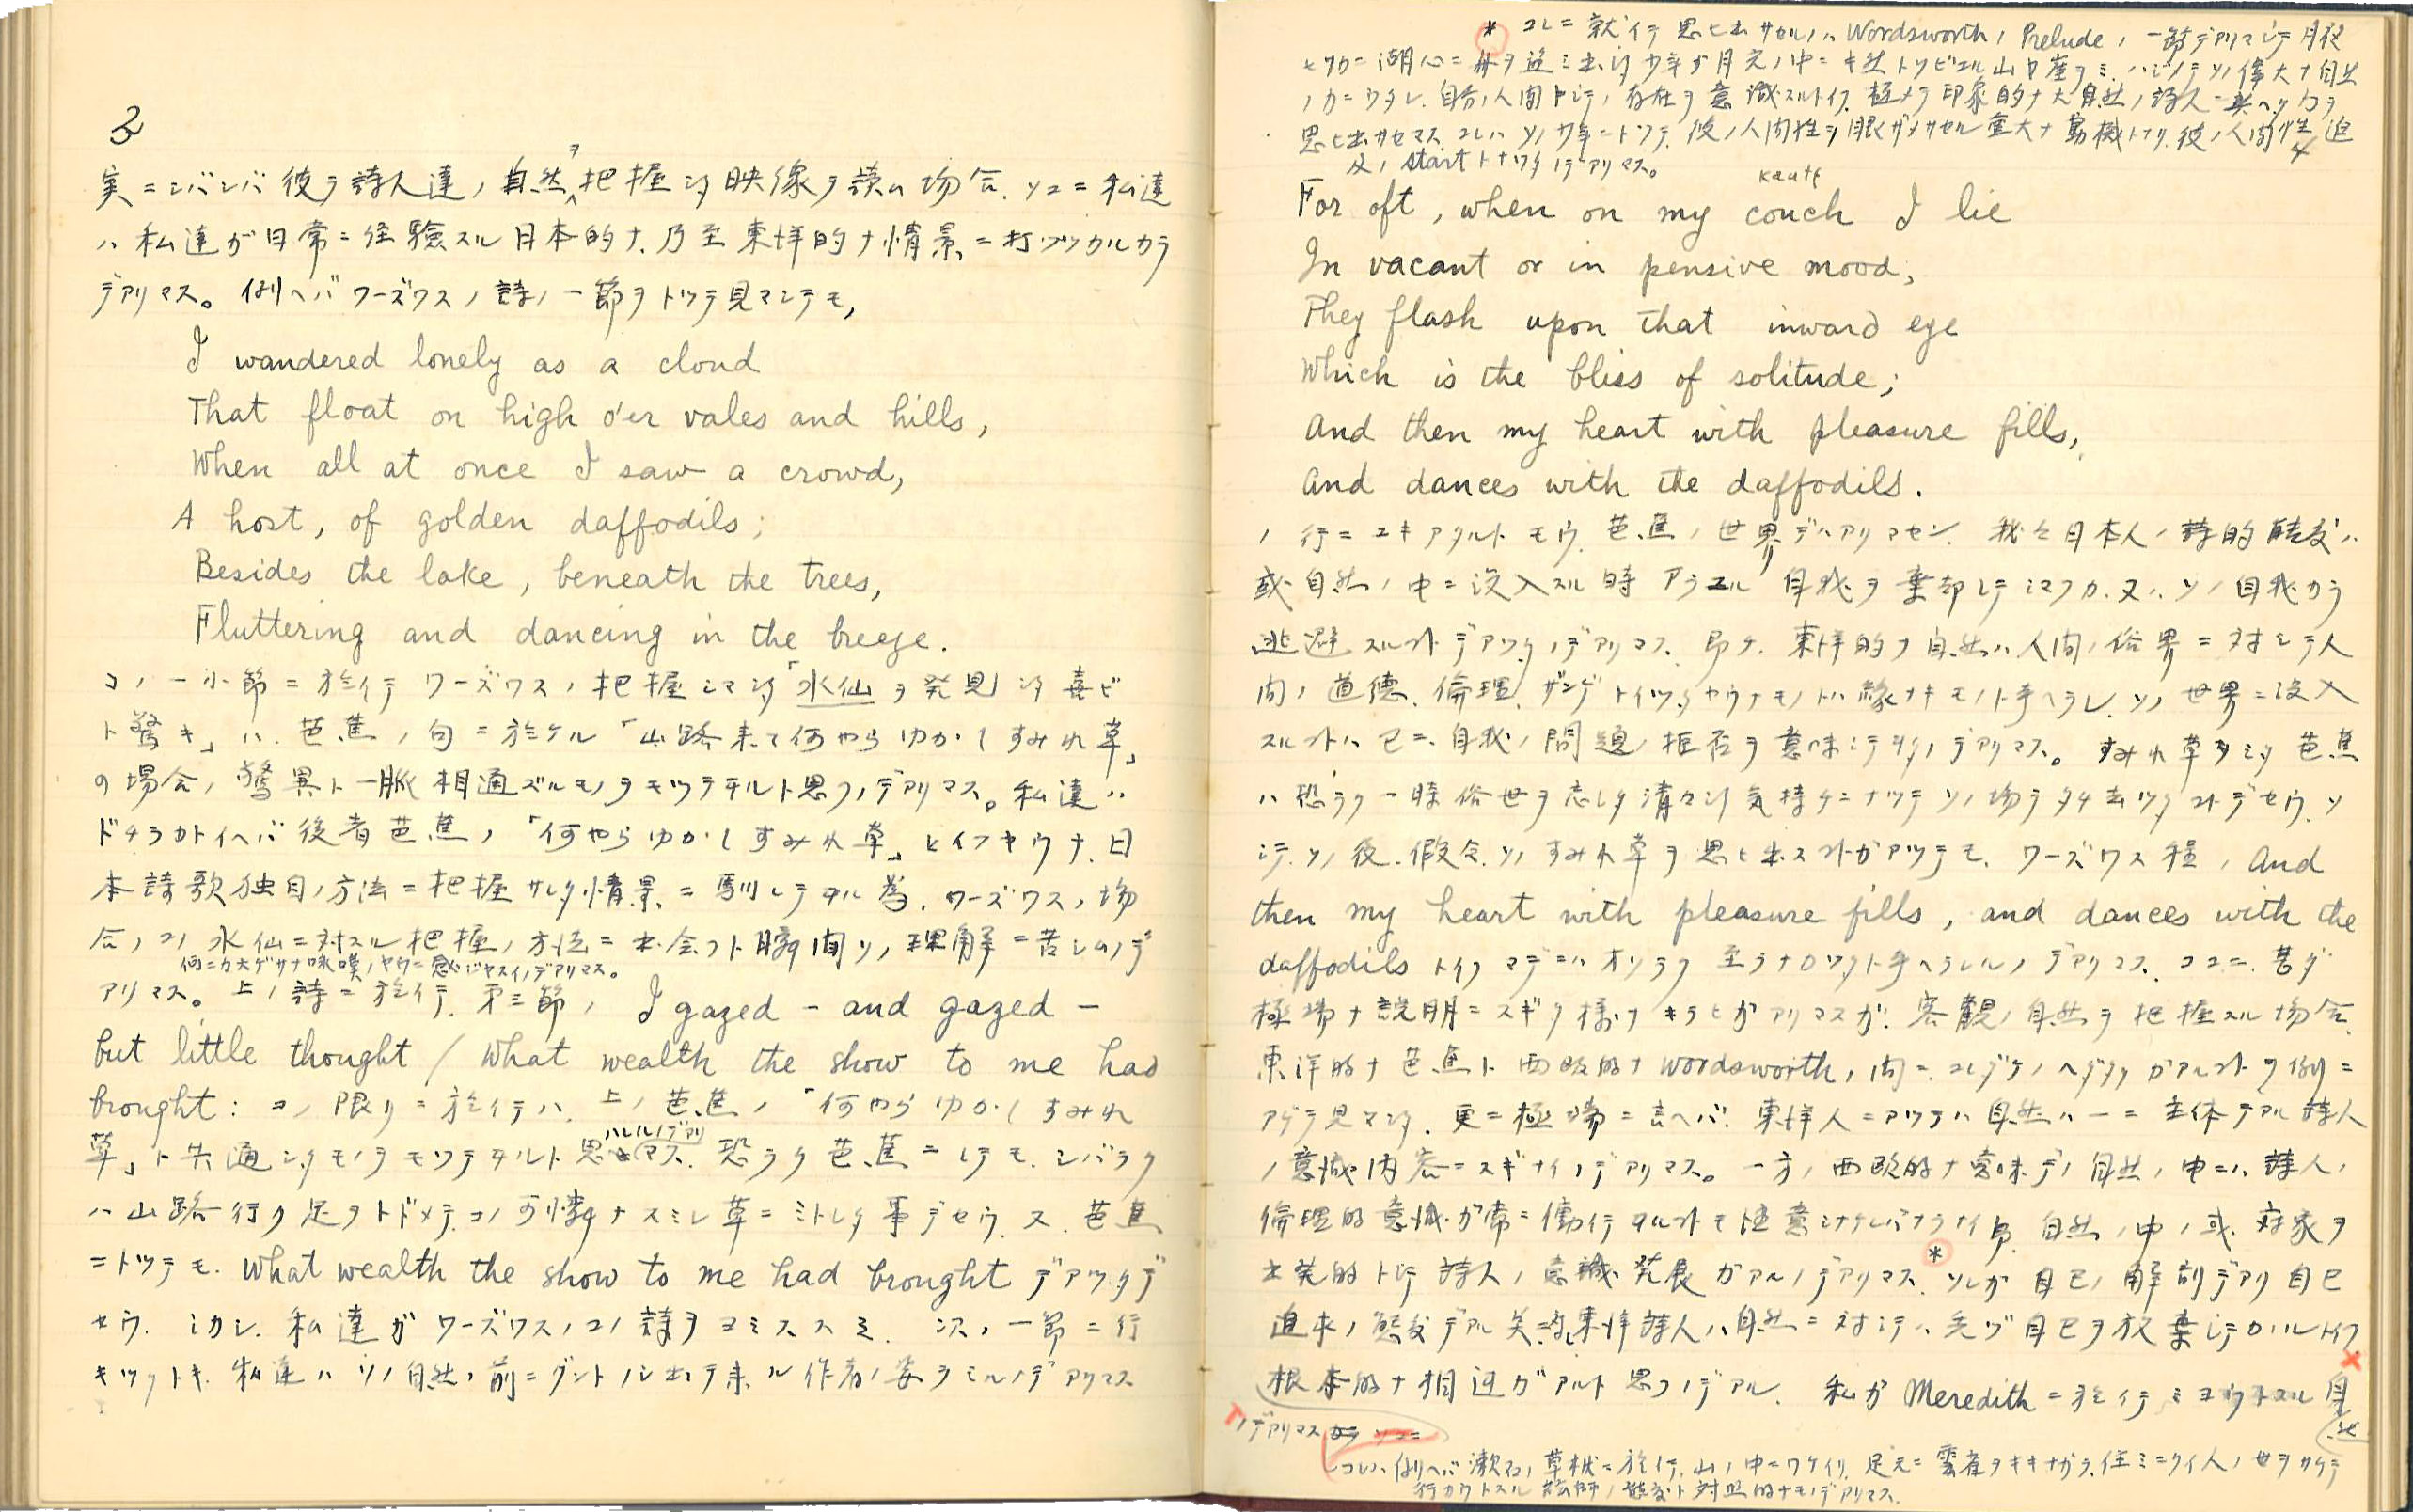 3
実ニシバシバ彼ラ詩人達ノ自然ヲ把握シタ映像ヲ読ム場合、ソコニ私達
ハ私達ガ日常ニ経験スル日本的ナ、乃至東洋的ナ情景ニ打ブツカルカラ
デアリマス。例ヘバワーズワスノ詩ノ一節ヲトッテ見マシテモ,
I wandered lonely as a cloud
That float on high o'er vales and hills,
When all at once I saw a crowd,
A host, of golden daffodils;
Besides the lake, beneath the trees,
Fluttering and dancing in the breeze.
コノ一小節ニ於イテワーズワスノ把握シマシタ「水仙ヲ発見シタ喜ビ
ト驚キ」ハ、芭蕉ノ句ニ於ケル「山路来て何やらゆかしすみれ草」
の場合ノ驚異ト一脈相通ズルモノヲモッテヰルト思フノデアリマス。私達ハ
ドチラカトイヘバ後者芭蕉ノ「何やらゆかしすみれ草」トイフヤウナ、日
本詩歌独自ノ方法ニ把握サレタ情景ニ馴レテヰル為、ワーズワスノ場
合ノコノ水仙ニ対スル把握ノ方法ニ出会フト瞬間ソノ理解ニ苦シムノデ
何ニカ大ゲサナ咏嘆ノヤウニ感ジヤスイノデアリマス。
アリマス。上ノ詩ニ於イテ、第三節ノ I gazed - and gazed -
but little thought / What wealth the show to me had
brought: コノ限リニ於イテハ、上ノ芭蕉ノ「何やらゆかしすみれ
草」ト共通シタモノヲモッテヰルト思ハレルノデアリマス。恐ラク芭蕉ニシテモ、シバラク
ハ山路行ク足ヲトドメテ、コノ可憐ナスミレ草ニミトレタ事デセウ。又、芭蕉
ニトッテモ、What wealth the show to me had brought デアッタデ
セウ。シカシ、私達ガワーズワスノコノ詩ヲヨミススミ、次ノ一節ニ行
キツクトキ、私達ハソノ自然ノ前ニグントノシ出テ来ル作者ノ姿ヲミルノデアリマス
* コレニ就イテ思ヒ出サルルノハ Wordsworthノ Preludeノ一節デアリマシテ月夜
湖心ニ舟ヲ進ミ出シタ少年ガ月光ノ中ニキ然トソビエル山ノ座ヲミ、ハジメテソノ偉大ナ自然
ノ力ニウタレ、自分ノ人間トシテノ存在ヲ意識スルトイフ、極メテ印象的ナ大自然ノ詩人ニ与ヘタ力ヲ
思ヒ出サセマス。コレハソノ少年ニトッテ、彼ノ人間性ヲ眼ザメサセル重大ナ動機トナリ、彼ノ人間性追
及ノ start トナッタノデアリマス。
4
kautʃ
For oft, when on my couch I lie
In vacant or in pensive mood,
They flash upon that inward eye
Which is the bliss of solitude;
And then my heart with pleasure fills,
And dances with the daffodils.
ノ行ニユキアタルトモウ、芭蕉ノ世界デハアリマセン。我々日本人ノ詩的態度ハ
或自然ノ中ニ没入スル時アラユル自我ヲ棄却シテシマフカ、又ハソノ自我カラ
逃避スルコトデアッタノデアリマス。即チ、東洋的ナ自然ハ人間ノ俗界ニ対シテ人
間ノ道徳、倫理、ザンゲトイッタヤウナモノトハ縁ナキモノト考ヘラレ、ソノ世界ニ没入
スルコトハ已ニ、自我ノ問題ノ拒否ヲ意味シテヰタノデアリマス。すみれ草ヲミタ芭蕉
ハ恐ラク一時俗世ヲ忘レタ清々シイ気持チニナッテソノ場ヲタチ去ッタコトデセウ。ソ
シテ、ソノ後、假令、ソノすみれ草ヲ思ヒ出スコトガアッテモ、ワーズワス程、And
then my heart with pleasure fills, and dances with the
daffodils トイフマデニハオソラク至ラナカッタト考ヘラレルノデアリマス。ココニ、甚ダ
極端ナ説明ニスギタ様ナキラヒガアリマスガ、客観ノ自然ヲ把握スル場合、
東洋的ナ芭蕉ト西欧的ナ Wordsworthノ間ニ、コレダケノヘダタリガアルコトヲ例ニ
アゲテ見マシタ。更ニ極端ニ言ヘバ、東洋人ニアッテハ自然ハ一ニ主体デアル詩人
ノ意識内容ニスギナイノデアリマス。一方ノ西欧的ナ意味デノ自然ノ中ニハ詩人ノ
倫理的意識ガ常ニ働イテヰルコトモ注意シナケレバナラナイ。即、自然ノ中ノ或対象ヲ
出発的トシテ詩人ノ意識ノ発展ガアルノデアリマス。* ソレガ自己ノ解剖デアリ自己
追求ノ態度デアル 東洋詩人ハ自然ニ対シテハ先ヅ自己ヲ放棄シテカカルトイフ
根本的ナ相違ガアルト思フノデアル。私ガ Meredith ニ於イテミヨウトスル自然
ノデアリマス
コレハ例ヘバ漱石ノ草枕ニ於イテ、山ノ中ニワケイリ、足元ニ雲雀ヲキキナガラ、住ミニクイ人ノ世ヲサケテ
行カウトスル ノ態度ト対照的ナモノデアリマス。